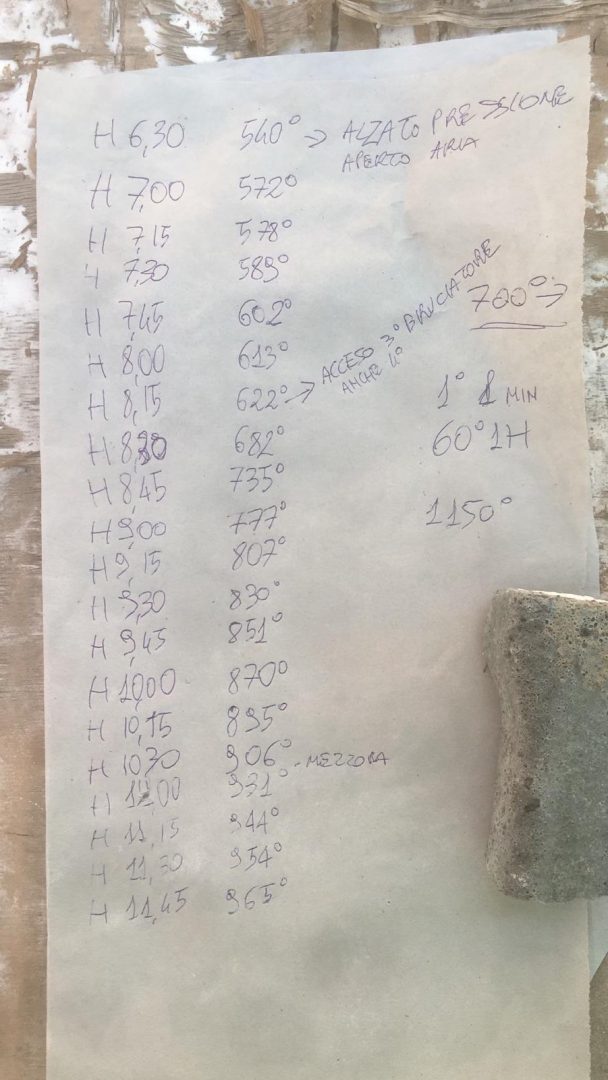 H 6,30 540° → ALZATO PRESSIONE
APERTO ARIA
H 7,00 572°
H 7,15 578°
H 7,30 589°
H 7,45 602°
H 8,00 613°
H 8,15 622° → ACCESO 3° BRUCIATORE
ANCHE 4°
H 8,30 682°
H 8,45 735°
H 9,00 777°
H 9,15 807°
H 9,30 830°
H 9,45 851°
H 10,00 870°
H 10,15 895°
H 10,30 906° - MEZZORA
H 11,00 931°
H 11,15 944°
H 11,30 954°
H 11,45 965°
700° →
1° 1 MIN
60° 1H
1150°